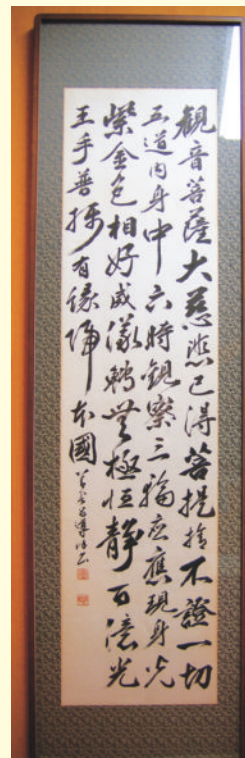 観音菩薩大慈悲已得菩提捨不證一切
五道内身中六時観察三輪応應現身光
紫金色相好威儀轉無極恒静百億光
王手普摂有縁歸本國